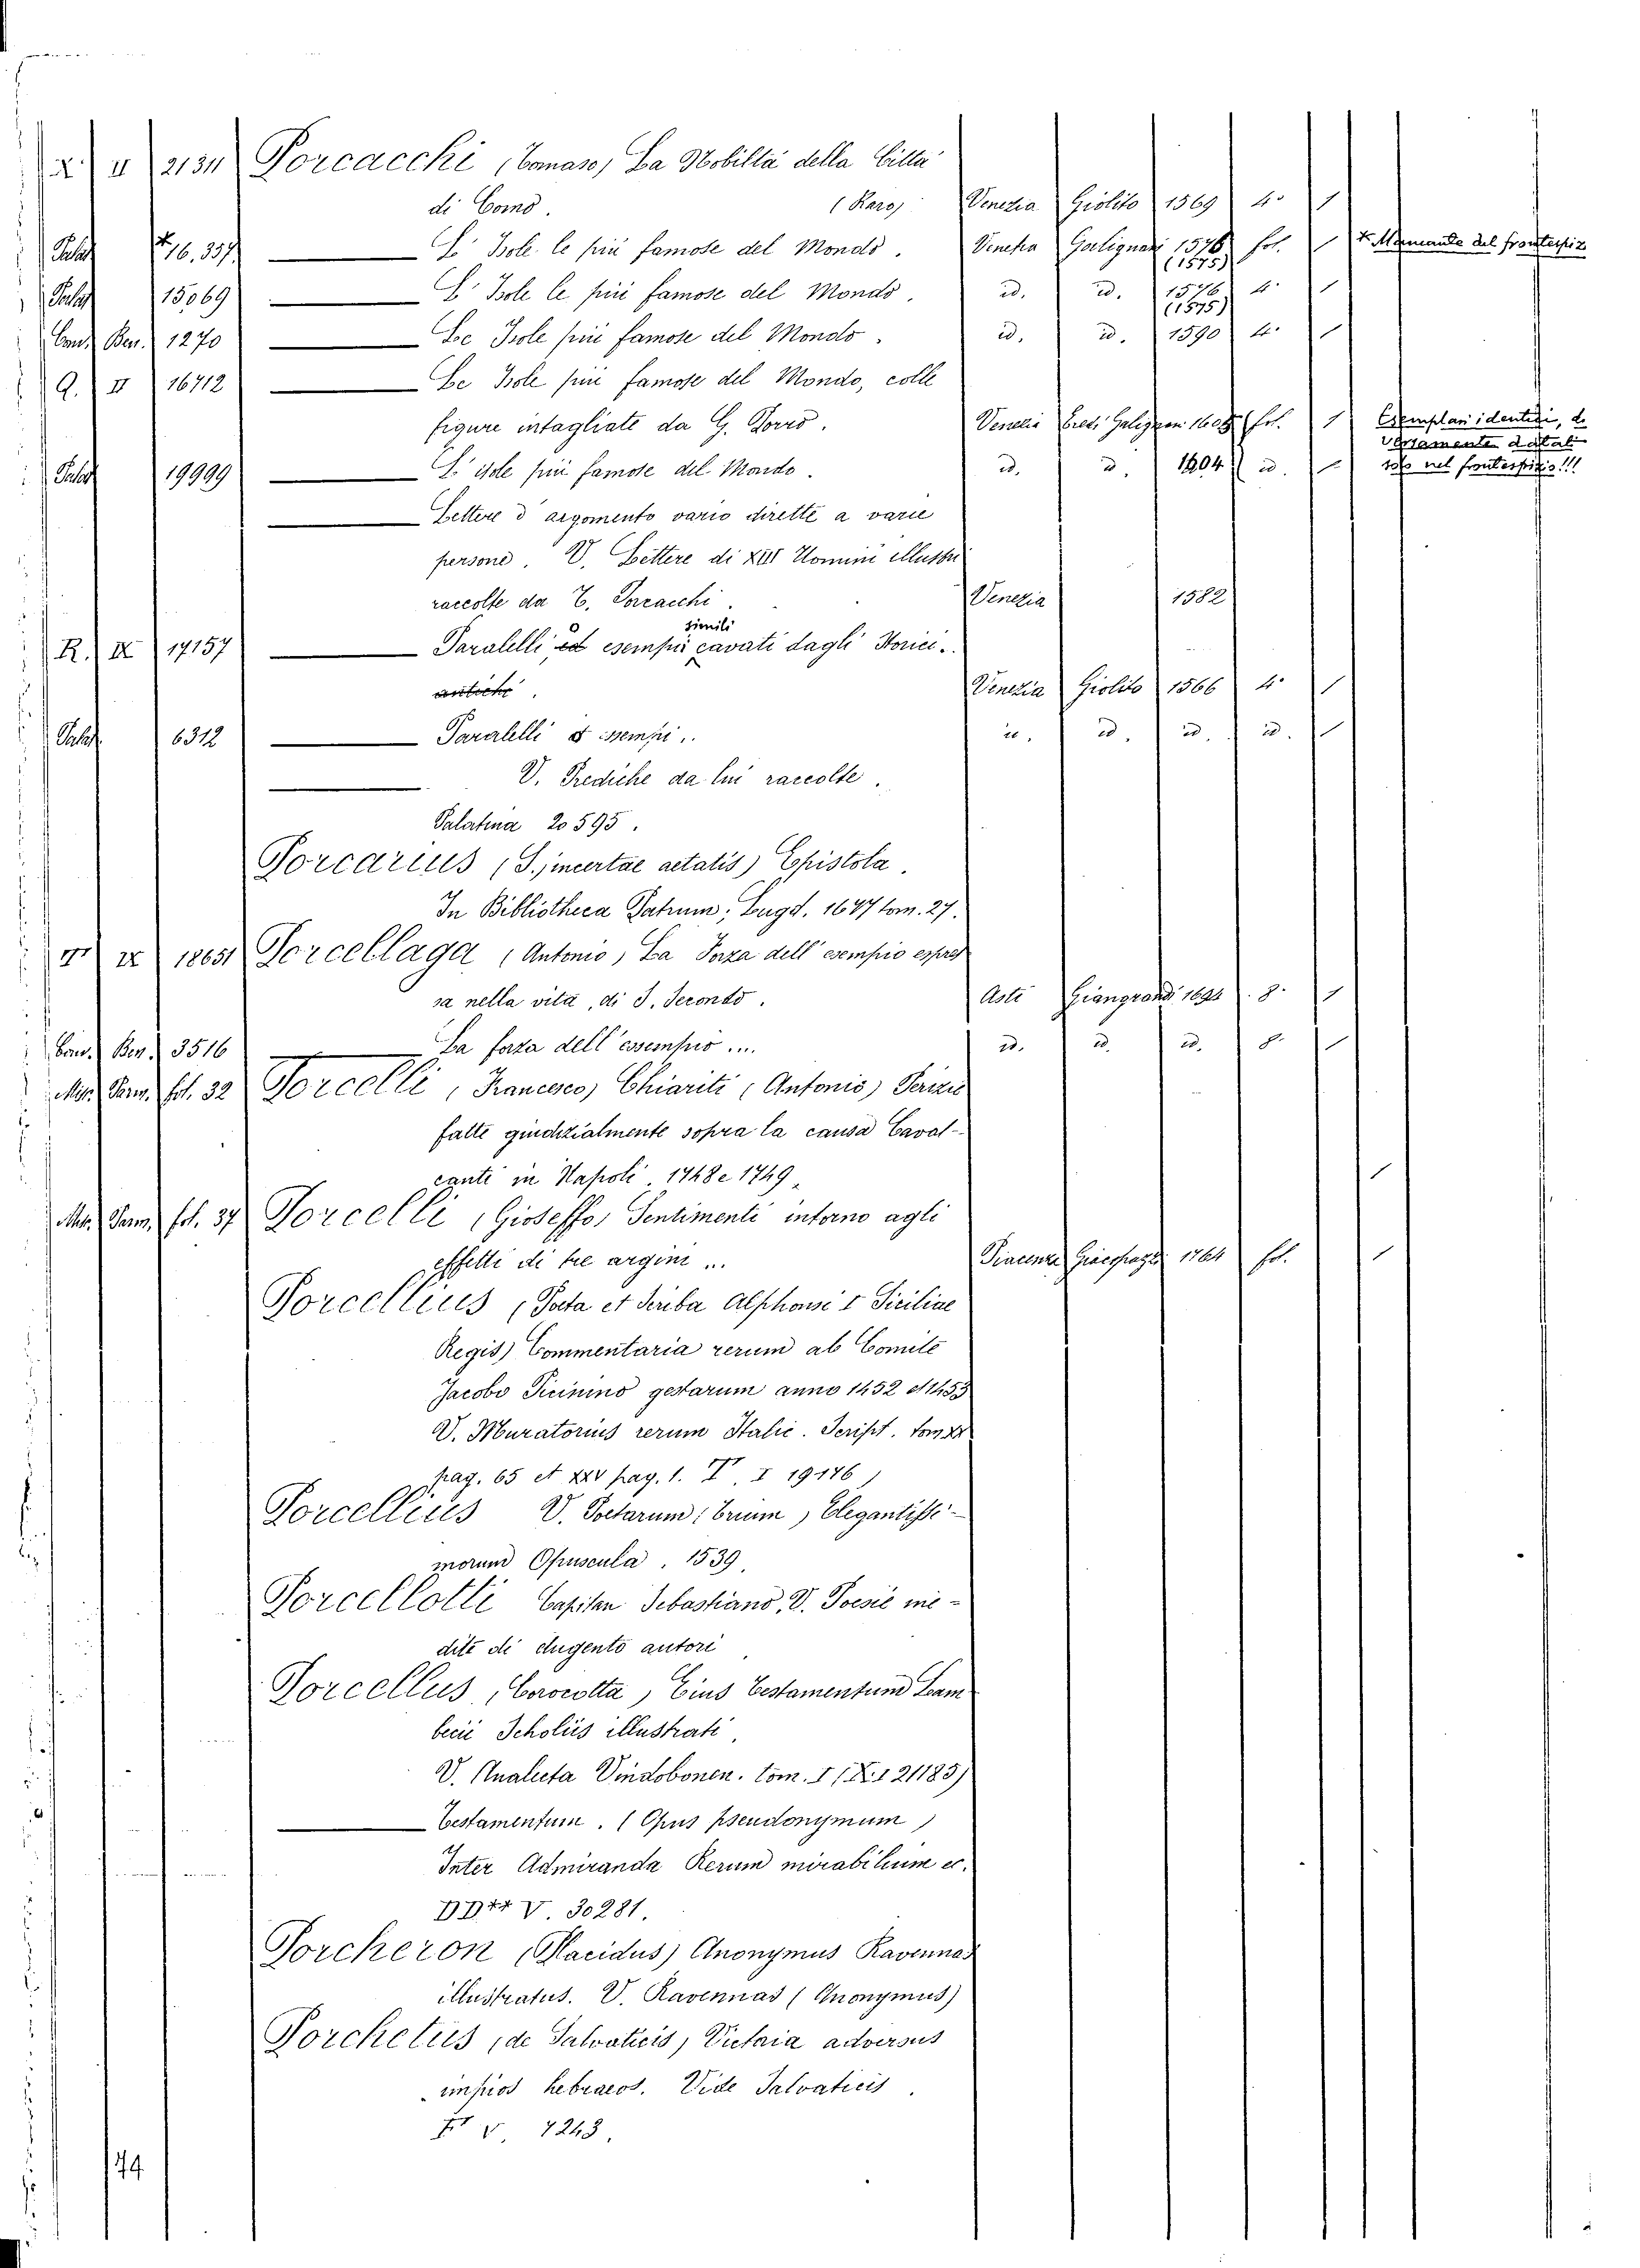 X. II 21311 Porcacchi (Tomaso) La Nobiltà della Città
di Como. (Raro) Venezia Giolito 1569 4° 1
Palat *16.357 L' Isole le più famose del Mondo. Venezia Galignani 1576 (1575) fol. 1 * Mancante del frontespiz
Palat 15069 L' Isole le più famose del Mondo. id. id. 1576 (1575) 4° 1
Cons. Ben. 1270 Le Isole più famose del Mondo. id. id. 1590 4° 1
Q. II 16712 Le Isole più famose del Mondo, colle
figure intagliate da G. Porro. Venezia Eredi Galignani 1605 fol. 1 Esemplari identici, d.
versamente datati
Palat 19999 L' isole più famose del Mondo. id. id. 1604 id. 1 solo nel frontespizio!!!
Lettere d' argomento vario dirette a varie
persone. V. Lettere di XIII Uomini illustri
raccolte da T. Porcacchi. Venezia 1582
R. IX 17157 Paralelli ed esempi simili cavati dagli Storici.
antichi. Venezia Giolito 1566 4° 1
Palat. 6312 Paralelli o esempi.. id. id. id. id. 1
V. Prediche da lui raccolte.
Palatina 20595.
Porcarius (S., incertae aetatis) Epistola.
In Bibliotheca Patrum, Lugd. 1677 tom. 27.
IX 18651 Porcellaga (Antonio) La Forza dell' esempio espres
sa nella vita, di S. Secondo. Asti Giangrandi 1692 8° 1
Cons. Ben. 3516 La forza dell' essempio .... id. id. id. 8° 1
Mis. Parm. fol. 32 Porcelli (Francesco) Chiariti (Antonio) Perizie
fatte giudizialmente sopra la causa Caval-
canti in Napoli. 1748 e 1749. 1
Mis. Parm. fol. 37 Porcelli (Gioseffo) Sentimenti intorno agli
effetti di tre argini ... Piacenza 1764 fol. 1
Porcellius (Poeta et Scriba Alphonsi I Siciliae
Regis) Commentaria rerum ab Comite
Jacobo Picinino gestarum anno 1452 et 1453
V. Muratorius rerum Italic. Script. tom. XX
pag. 65 et XXV pag. 1. I 19176)
Porcellius V. Poetarum (trium) Elegantissi-
morum Opuscula. 1539.
Porcellotti Capitan Sebastiano, V. Poesie ine-
dite di dugento autori
Porcellus (Corocotta) Eius Testamentum Lam
becii Scholiis illustrati.
V. Analecta Vindobonen. tom. I (X. I 21183)
Testamentum. (Opus pseudonymum)
Inter Admiranda Rerum mirabilium ec.
DD** V. 30281.
Porcheron (Placidus) Anonymus Ravennas
illustratus. V. Ravennas (Anonymus)
Porchetus (de Salvaticis) Victoria adversus
impios hebraeos. Vide Salvaticis.
V. 7243.
74